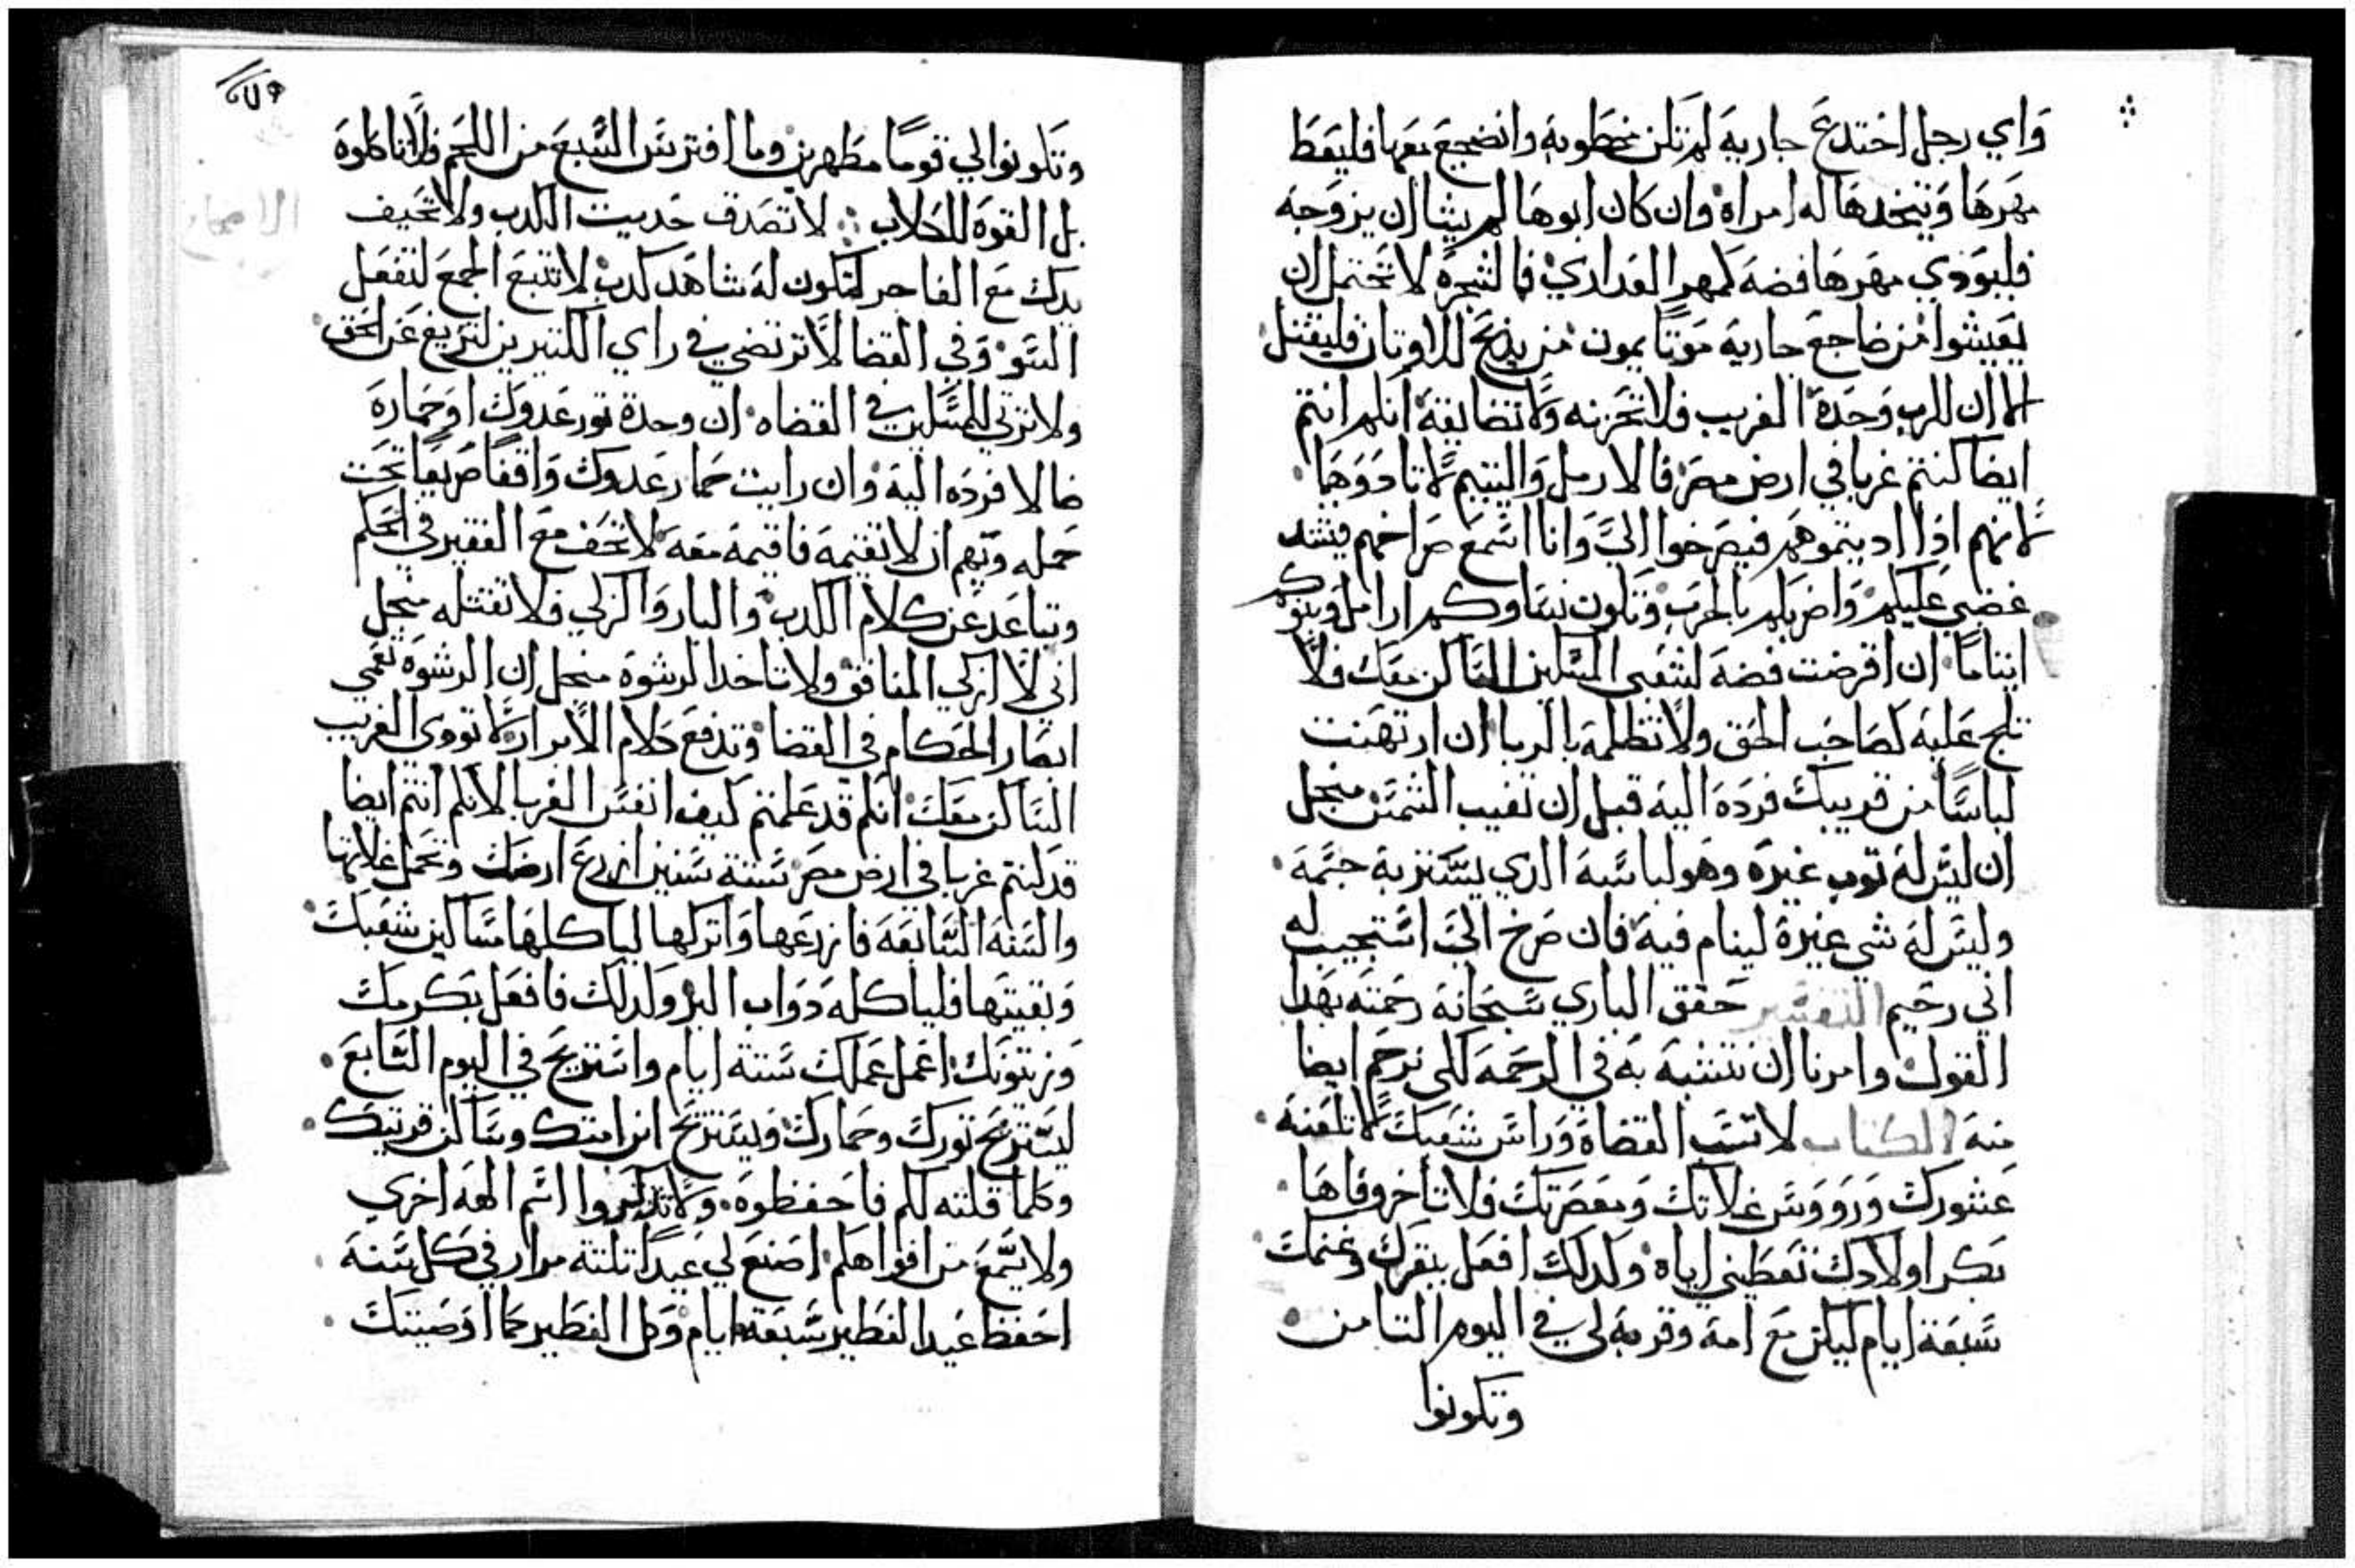 واي رجل اختدع جاريه لم تكن مخطوبه وانضجع معها فليعط
مهرها ويتخدها له امراه وان كان ابوها لم يشا ان يزوجه
فليودي مهرها فضه كمهر العداري فالشجره لا تحتمل ان
يعيشوا من ضاجع جاريه موتا يموت من يذبح للاوتان فليقتل
الا ان للرب وحده الغريب فلا تحزنه ولا تضايقه انكم انتم
ايضا كنتم غربا في ارض مصر فالارمل واليتيم لا تادووهما
لانهم ادا اديتموهم فيصرخوا الي وانا اسمع صراخهم فيشتد
غضبي عليكم واضربكم بالحرب وتكون نساوكم ارامل وبنوكم
ايتاما ان اقرضت فضه لشعبي المسكين الساكن معك فلا
تلج عليه كصاحب الحق ولا تظلمه بالربا ان ارتهنت
لباسا من قريبك فرده اليه قبل ان تغيب الشمس منجل
ان ليس له توب غيره وهو لباسه الدي يستتر به جسمه
وليس له شي غيره لينام فيه فان صرخ الي استجيب له
اني رحيم التفسير حقق الباري سبحانه رحمته بهدا
القول وامرنا ان نتشبه به في الرحمه لكي نرحم ايضا
منه الكتاب لا تسب القضاه وراس شعبك لا تلعنه
عشورك وروووس غلاتك ومعصرتك فلا تأخر وفاها
بكر اولادك تعطيني اياه ولدلك افعل ببقرك وغنمك
سبعة ايام ليكن مع امه وقربه لي في اليوم التامن
وتكونوا
وتكونوا لي قوما مطهرين وما افترس السبع من اللحم فلا تاكلوه
بل القوه للكلاب لا تصدق حديت الكدب ولا تحيف
يدك مع الفاجر لتكون له شاهد كدب لا تتبع الجمع لتفعل
السو وفي القضا لا ترتضي في راي الكتيرين لتزيغ عن الحق
ولا ترتي للمسكين في القضاه ان وجدة تور عدوك او حماره
ضالا فرده اليه وان رايت حمار عدوك واقفا صريعا تحت
حمله وتهم ان لا تقيمه فاقيمه معه لا تحف مع الفقير في الحكم
وتباعد عن كلام الكدب والبار والزكي فلا تقتله منجل
اني لا ازكي المنافق ولا تاخد الرشوه منجل ان الرشوه تعمي
ابصار الحكام في القضا وتدفع كلام الابرار لا تودي الغريب
الساكن معك انكم قد علمتم كيف انفس الغربا لانكم انتم ايضا
قد كنتم غربا في ارض مصر ستة سنين ازرع ارضك وتحمل غلاتها
والسنه السابعه فا نزعها واتركها لياكلها مساكين شعبك
وبقيتها فلياكله دواب البر ولدلك فافعل بكرمك
وزيتونك اعمل عملك ستة ايام واستريح في اليوم السابع
ليستريح تورك وحمارك ويستريح ابن امتك وساكن قريتك
وكلما قلته لكم فاحفظوه ولا تدكروا اسم الهه اخري
ولا يسمع من افواهكم اصنع لي عيدا تلتة مرار في كل سنه
احفظ عيد الفطير سبعة ايام وكل الفطير كما اوصيتك